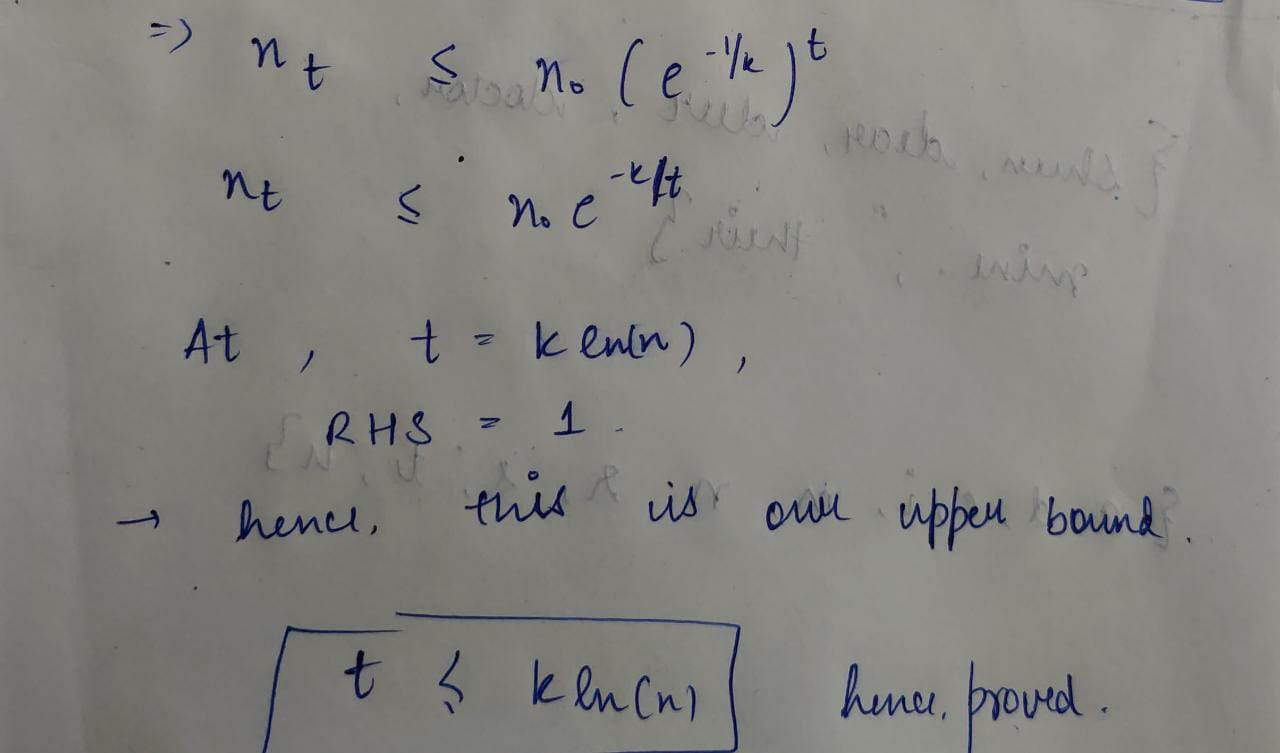 => n_t ≤ n₀ (e^{-1/k})^t
n_t ≤ n₀ e^{-k/t}
At , t = k ln(n) ,
RHS = 1 .
→ hence, this is our upper bound .
t ≤ k ln(n) hence, proved .